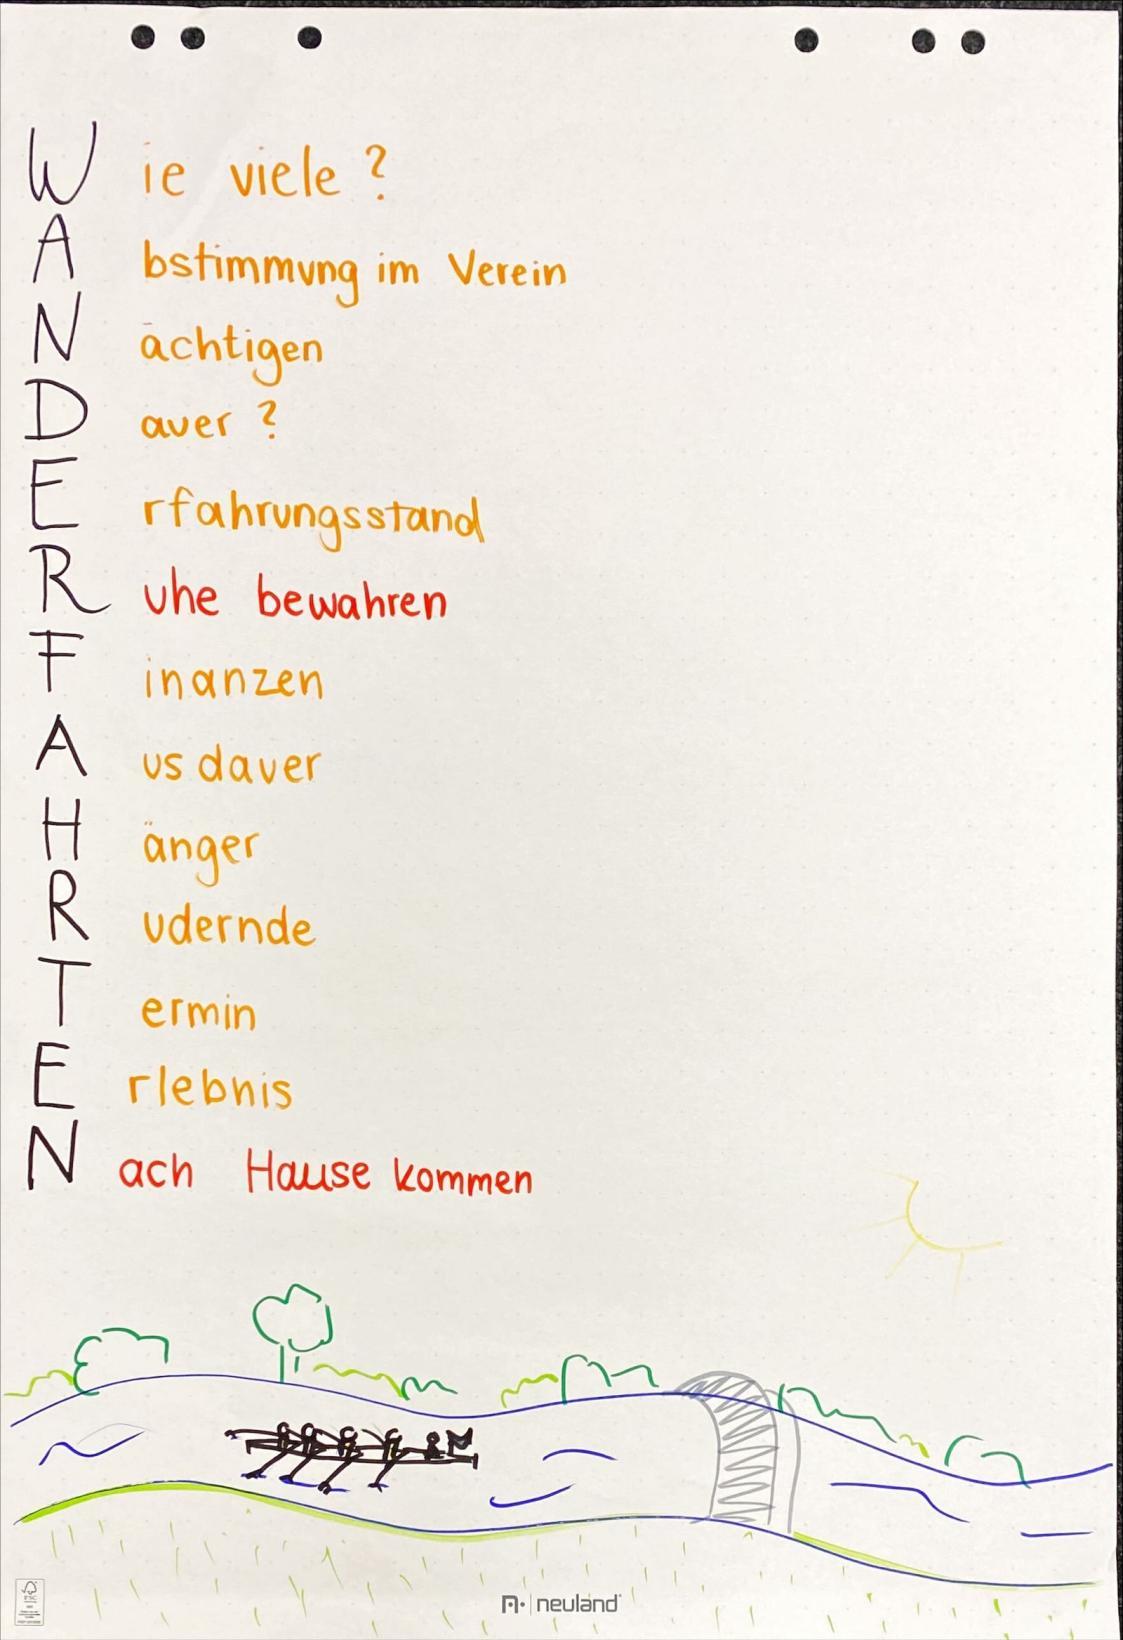 Wie viele ?
Abstimmung im Verein
Nächtigen
Dauer ?
Erfahrungsstand
Ruhe bewahren
Finanzen
Ausdauer
Hänger
Rudernde
Termin
Erlebnis
Nach Hause kommen
FSC
neuland